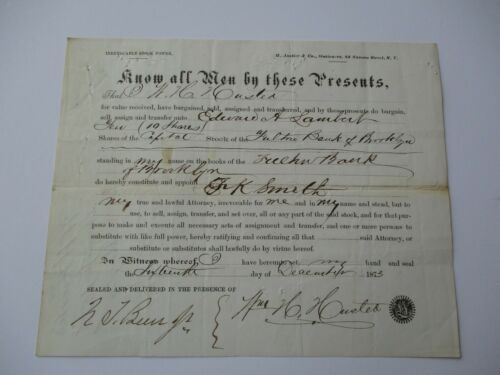 IRREVOCABLE STOCK POWER.
H. Anstice & Co., Stationers, 23 Nassau Street, N. Y.
Know all Men by these Presents,
That I Wm H. Husted
for value received, have bargained, sold, assigned and transferred, and by these presents do bargain,
sell, assign and transfer unto Edward A Lambert
Ten (10 Shares)
Shares of the Capital Stock of the Fulton Bank of Brooklyn
standing in my name on the books of the Fulton Bank
of Brooklyn
do hereby constitute and appoint F. K Smith
my true and lawful Attorney, irrevocable for me and in my name and stead, but to
use, to sell, assign, transfer, and set over, all or any part of the said stock, and for that pur-
pose to make and execute all necessary acts of assignment and transfer, and one or more persons to
substitute with like full power, hereby ratifying and confirming all that said Attorney, or
substitute or substitutes shall lawfully do by virtue hereof.
In Witness whereof, I have hereunto set my hand and seal
the day of December 1873
SEALED AND DELIVERED IN THE PRESENCE OF
Wm H. Husted